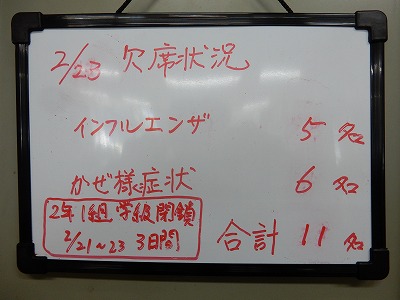 2/23 欠席状況
インフルエンザ 5名
かぜ様症状 6名
2年1組 学級閉鎖
2/21~23 3日間
合計 11名